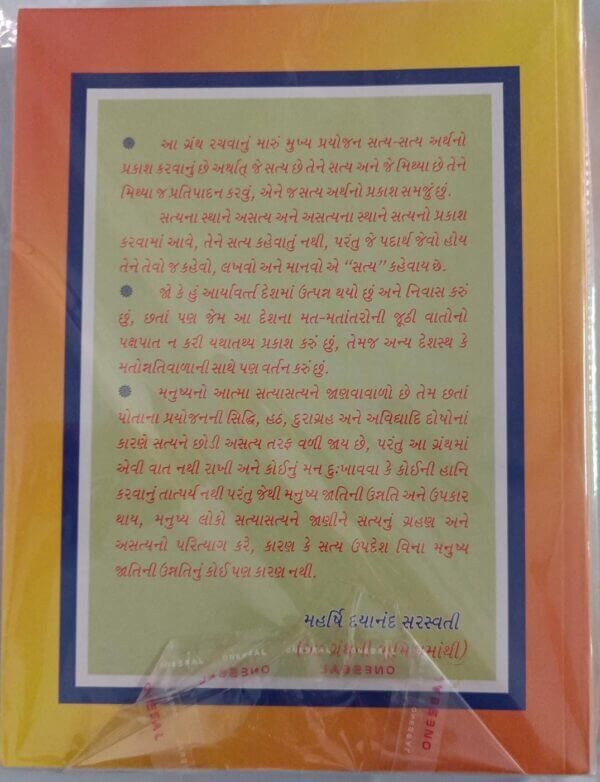 આ ગ્રંથ રચવાનું મારું મુખ્ય પ્રયોજન સત્ય-સત્ય અર્થનો
પ્રકાશ કરવાનું છે અર્થાત્ જે સત્ય છે તેને સત્ય અને જે મિથ્યા છે તેને
મિથ્યા જ પ્રતિપાદન કરવું, એને જ સત્ય અર્થનો પ્રકાશ સમજું છું.
સત્યના સ્થાને અસત્ય અને અસત્યના સ્થાને સત્યનો પ્રકાશ
કરવામાં આવે, તેને સત્ય કહેવાતું નથી, પરંતુ જે પદાર્થ જેવો હોય
તેને તેવો જ કહેવો, લખવો અને માનવો એ “સત્ય” કહેવાય છે.
જો કે હું આર્યાવર્ત્ત દેશમાં ઉત્પન્ન થયો છું અને નિવાસ કરું
છું, છતાં પણ જેમ આ દેશના મત-મતાંતરોની જૂઠી વાતોનો
પક્ષપાત ન કરી યથાતથ્ય પ્રકાશ કરું છું, તેમજ અન્ય દેશસ્થ કે
મતોન્નતિવાળાની સાથે પણ વર્તન કરું છું.
મનુષ્યનો આત્મા સત્યાસત્યને જાણવાવાળો છે તેમ છતાં
પોતાના પ્રયોજનની સિદ્ધિ, હઠ, દુરાગ્રહ અને અવિદ્યાદિ દોષોનાં
કારણે સત્યને છોડી અસત્ય તરફ વળી જાય છે, પરંતુ આ ગ્રંથમાં
એવી વાત નથી રાખી અને કોઈનું મન દુઃખાવવા કે કોઈની હાનિ
કરવાનું તાત્પર્ય નથી પરંતુ જેથી મનુષ્ય જાતિની ઉન્નતિ અને ઉપકાર
થાય, મનુષ્ય લોકો સત્યાસત્યને જાણીને સત્યનું ગ્રહણ અને
અસત્યનો પરિત્યાગ કરે, કારણ કે સત્ય ઉપદેશ વિના મનુષ્ય
જાતિની ઉન્નતિનું કોઈ પણ કારણ નથી.
મહર્ષિ દયાનંદ સરસ્વતી
ONESEAL ONESEAL
ONESEAL ONESEAL
ONESEAL ONESEAL